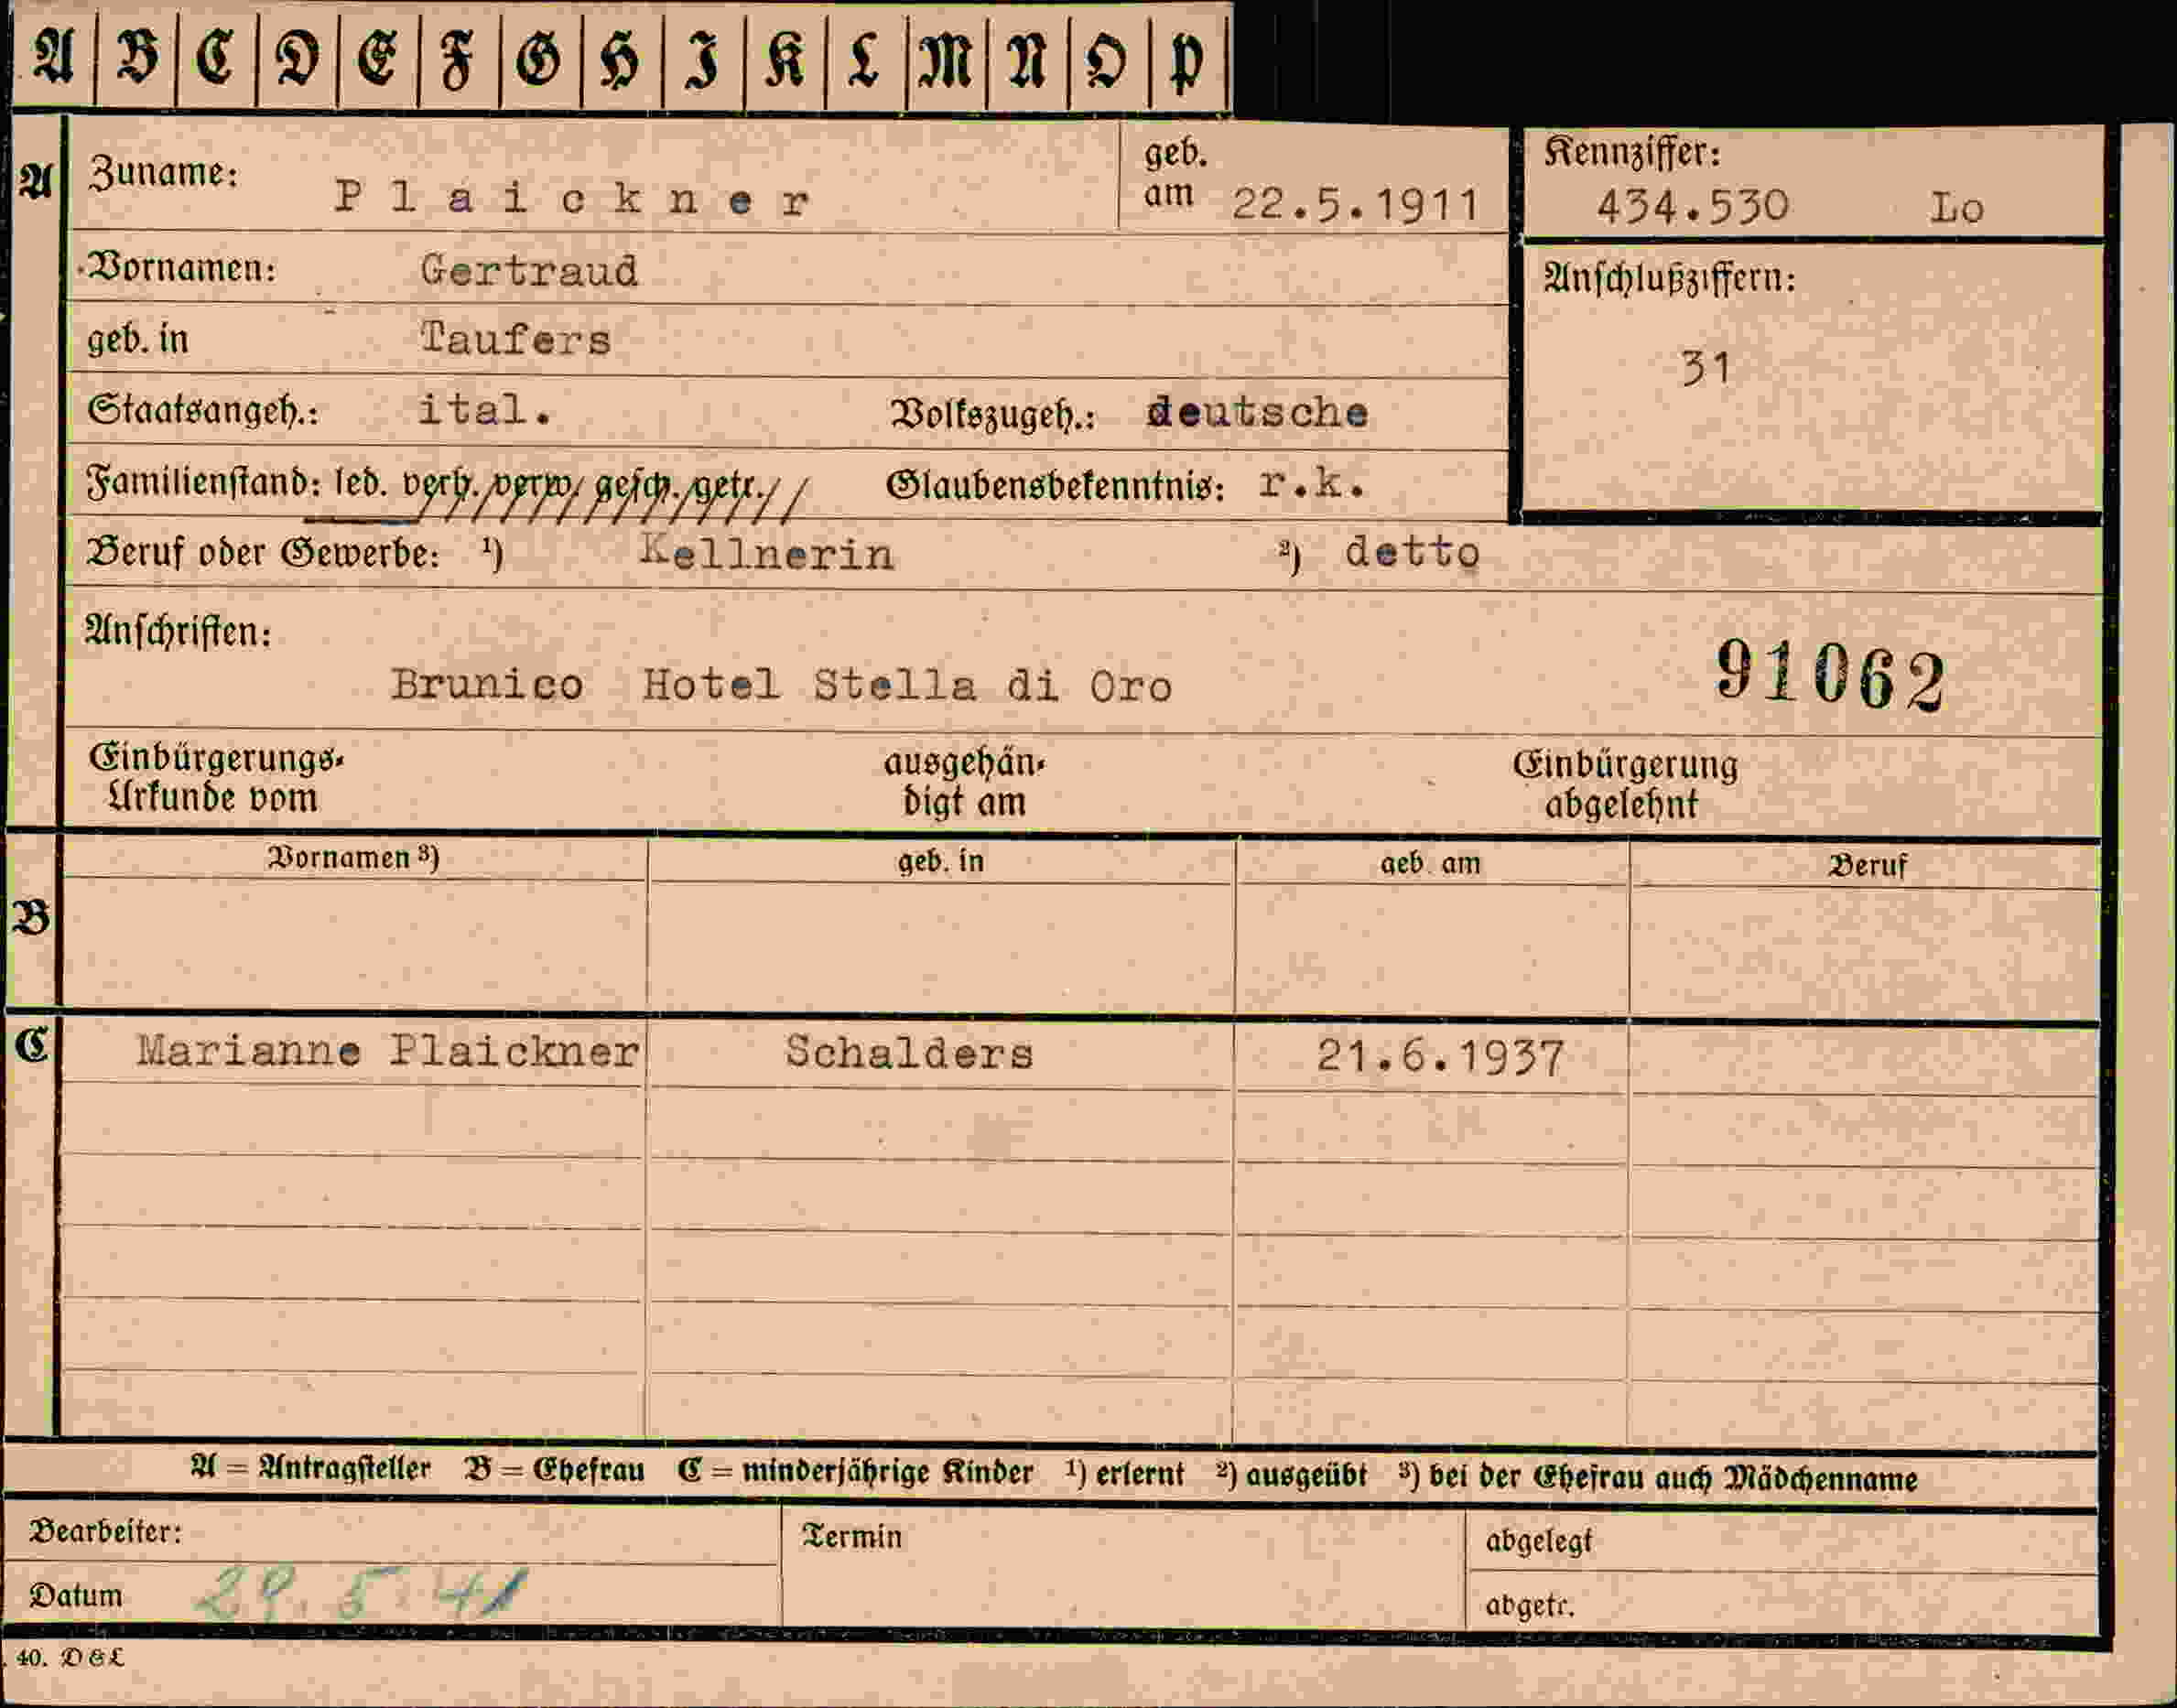 A B C D E F G H I K L M N O P
A Zuname: Plaickner geb. am 22.5.1911 Kennziffer: 434.530 Lo
Vornamen: Gertraud Anschlußziffern:
geb. in Taufers 31
Staatsangeh.: ital. Volkszugeh.: deutsche
Familienstand: led. verh. verw. gesch. getr. Glaubensbekenntnis: r.k.
Beruf oder Gewerbe: ¹) Kellnerin ²) detto
Anschriften:
Brunico Hotel Stella di Oro 91062
Einbürgerungs-
Urkunde vom
ausgehän-
digt am
Einbürgerung
abgelehnt
Vornamen ³) geb. in geb. am Beruf
B
C Marianne Plaickner Schalders 21.6.1937
A = Antragsteller B = Ehefrau C = minderjährige Kinder ¹) erlernt ²) ausgeübt ³) bei der Ehefrau auch Mädchenname
Bearbeiter: Termin abgelegt
Datum 29. 5. 41 abgetr.
40. D&L